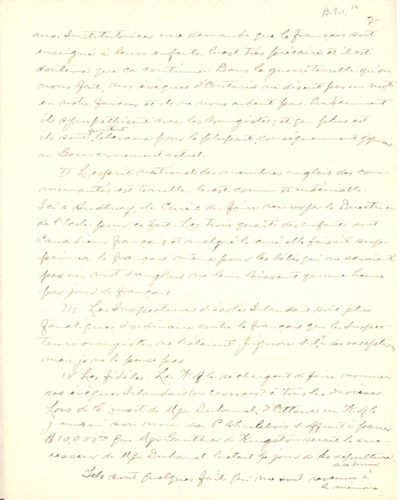 2
aux Institutrices une demande que le français soit
enseigné à leurs enfants. C'est très précaire et il est
douteux que ça continue. Dans la guerre terrible qu'on
nous fait, nos évêques d'Ontario ne disent pas un mot
en notre faveur et ils ne nous aident pas. Évidemment
ils sympathisent avec les orangistes; et qui plus est
ils sont pour la plupart, conséquemment
au Gouvernement actuel.
II L'esprit national des membres anglais des com-
munautés est terrible. C'est connu et indéniable.
Ici à Sudbury, le Curé a du faire renvoyer la Directrice
de l'école pour ce fait. Les trois quarts des enfants sont
Canadiens français et malgré la curé elle faisait sup-
primer le français même pour les bébés qui ne savaient
pas un mot d'anglais ne leur laissant qu'une heure
par jour de français.
III. Les Inspecteurs d'école Irlandais sont plus
fanatiques d'ordinaire contre le français que les Inspec-
teurs orangistes ne l'étaient. J'ignore s'il y a des exceptions
mais je ne le pense pas
IV Les fidèles. Les K of C se chargent de faire nommer
des évêques Irlandais (ou ) à tous les diocèses
Lors de la mort de Mgr Duhamel, d'Ottawa un K of C
son nom des offrait à parier
$10,000.00 que Mgr Gauthier de Kingston serait le suc-
cesseur de Mgr Duhamel. C'était le jour de la sépulture
du défunt
Tels sont quelques faits qui me sont revenus à
la mémoire